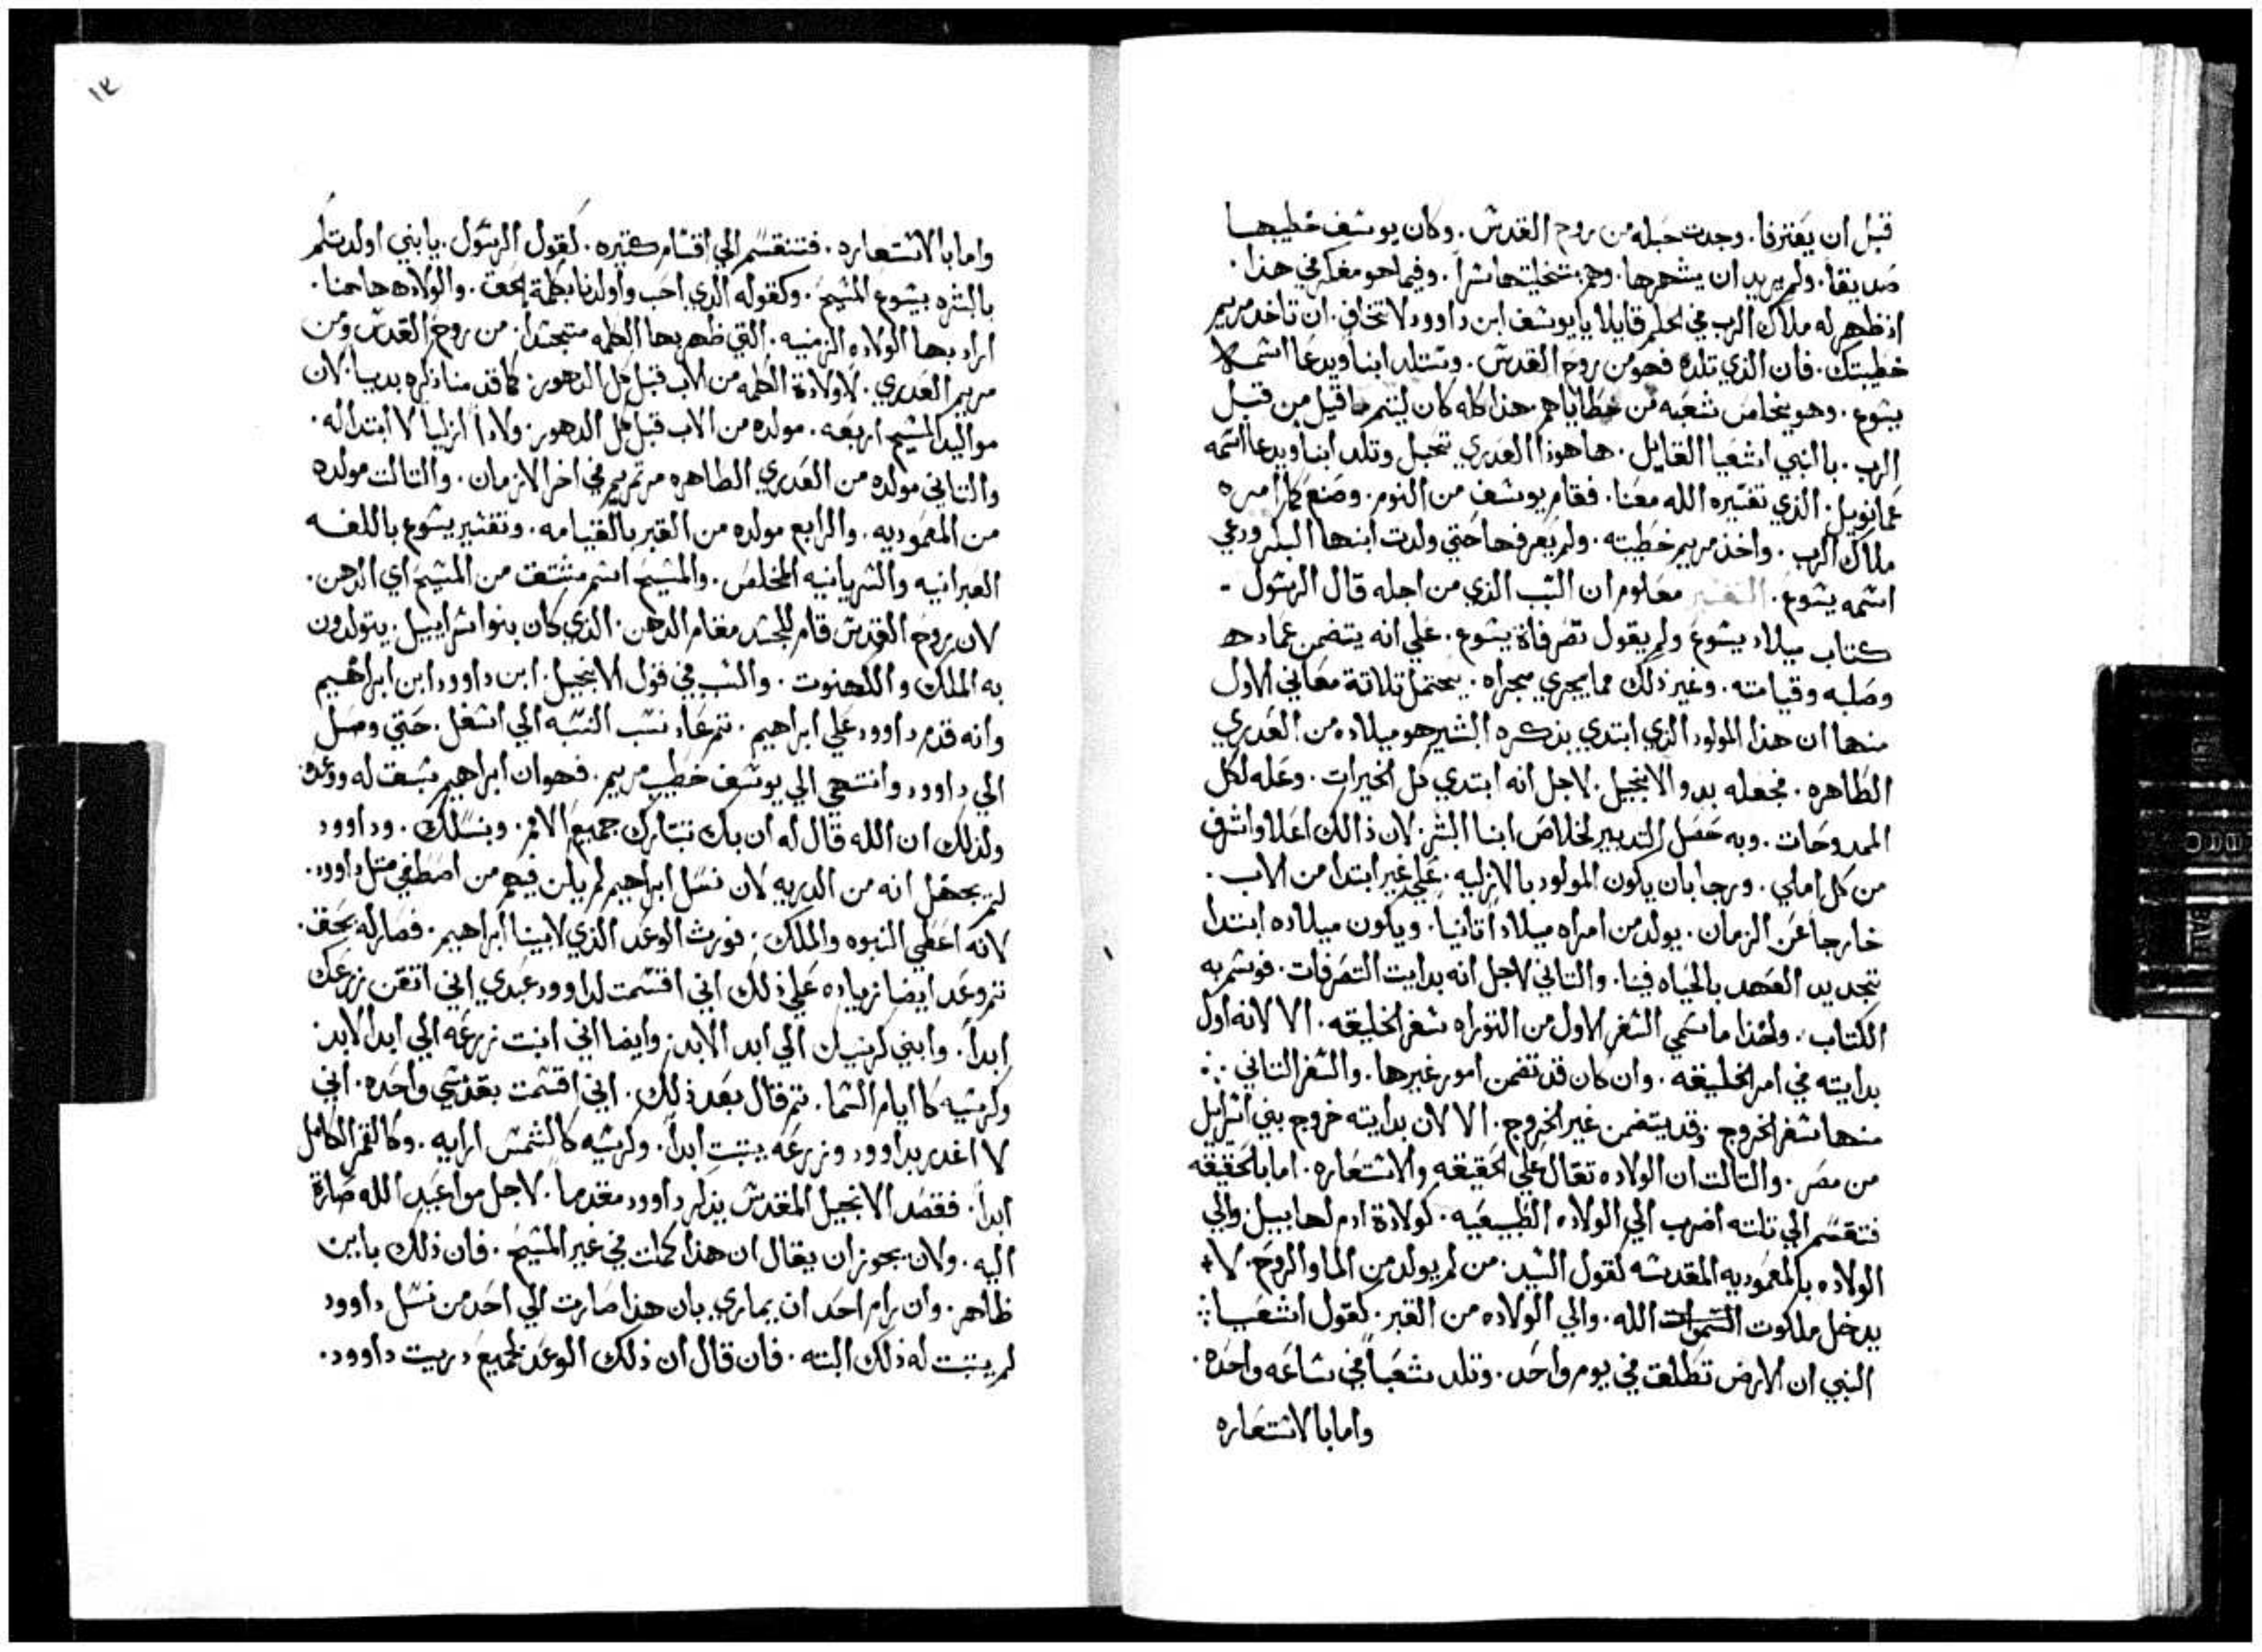 قبل ان يقترفا. وجدت حبله من روح القدس. وكان يوسف خطيبها
صديقا. ولم يريد ان يشهرها. وهم بتخليتها سرا. وفيما هو مفكر في هذا.
اذ ظهر له ملاك الرب في الحلم قايلا يا يوسف ابن داوود لا تخاف. ان تاخد مريم
خطيبتك. فان الذي تلده فهو من روح القدس. وستلد ابنا ويدعا اسمه
يسوع. وهو يخلص شعبه من خطاياهم. هذا كله كان ليتم ما قيل من قبل
الرب. بالنبي اشعيا القايل. ها هوذا العدري تحبل وتلد ابنا ويدعا اسمه
عمانويل. الذي تفسيره الله معنا. فقام يوسف من النوم. وصنع كما امره
ملاك الرب. واخذ مريم خطيبته. ولم يعرفها حتي ولدت ابنها البكر ودعي
اسمه يسوع. التفسير معلوم ان السبب الذي من اجله قال الرسول -
كتاب ميلاد يسوع ولم يقول تصرفاة يسوع. علي انه يتضمن عماده
وصلبه وقيامته. وغير ذلك مما يجري مجراه. يحتمل تلاتة معاني الاول
منها ان هذا المولود الذي ابتدي بذكره البشير هو ميلاده من العدري
الطاهره. فجعله بدو الانجيل. لاجل انه ابتدي كل الخيرات. وعله لكل
الممدوحات. وبه حصل التدبير لخلاص ابنا البشر. لان ذالك اعلا واشرف
من كل املي. ورجا بان يكون المولود بالازليه. علي غير ابتدا من الاب.
خارجا عن الزمان. يولد من امراه ميلادا تانيا. ويكون ميلاده ابتدا
تجديد العهد بالحياه فينا. والتاني لاجل انه بدايت التصرفات. فوسم به
الكتاب. ولهذا ما سمي السفر الاول من التوراه سفر الخليقه. الا لانه اول
بدايته في امر الخليقه. وان كان قد تضمن امور غيرها. والسفر التاني :.
منها سفر الخروج وقد يتضمن غير الخروج. الا لان بدايته خروج بني اسرايل
من مصر. والتالت ان الولاده تقال علي الحقيقه والاستعاره. اما بالحقيقه
فتنقسم الي تلتة اضرب الي الولاده الطبيعيه. كولادة ادم لهابيل. والي
الولاده بالمعموديه المقدسه لقول السيد. من لم يولد من الما والروح. لا
يدخل ملكوت السموات الله. والي الولاده من القبر. كقول اشعيا :
النبي ان الارض تطلقت في يوم واحد. وتلد شعبا في ساعه واحده.
واما بالاستعاره
١٣
واما بالاستعاره. فتنقسم الي اقسام كتيره. كقول الرسول. يا بني اولدتكم
بالبشره بيسوع المسيح. وكقوله الذي احب واولدنا بكلمة الحق. والولاده هاهنا.
اراد بها الولاده الزمنيه. التي ظهر بها الكلمه متجسدا. من روح القدس ومن
مريم العدري. لا ولادة الكلمه من الاب قبل كل الدهور. كما قدمنا ذكره بديا. لان
مواليد المسيح اربعه. مولده من الاب قبل كل الدهور. ولادا ازليا لا ابتدا له.
والتاني مولده من العدري الطاهره مرتمريم في اخر الازمان. والتالت مولده
من المعموديه. والرابع مولده من القبر بالقيامه. وتفسير يسوع باللغه
العبرانيه والسريانيه المخلص. والمسيح اسم مشتق من المسيح اي الدهن.
لان روح القدس قام للجسد مقام الدهن. الذي كان بنوا اسراييل. يتولدون
به الملك والكهنوت. والسبب في قول الانجيل. ابن داوود ابن ابراهيم
وانه قدم داوود علي ابراهيم. تم عاد نسب النسبه الي اسفل. حتي وصل
الي داوود وانتهي الي يوسف خطيب مريم. فهو ان ابراهيم سبق له ووعده
ولذلك ان الله قال له ان بك تتبارك جميع الامم. وبنسلك. وداوود
لم يجهل انه من الدريه لان نسل ابراهيم لم يكن فيهم من اصطفي متل داوود.
لانه اعطي النبوه والملك. فورث الوعد الذي لابينا ابراهيم. فصار له بحق.
تم وعد ايضا زياده علي ذلك اني اقسمت لداوود عبدي اني اتقن زرعك
ابدا. وابني كرسيك الي ابد الابد. وايضا اني اتبت زرعه الي ابد الابد
وكرسيه كايام السما. تم قال بعد ذلك. اني اقسمت بقدسي واحده. اني
لا اغدر بداوود وزرعه يتبت ابدا. وكرسيه كالشمس ارايه. وكالقمر الكامل
ابدا. فقصد الانجيل المقدس بذكر داوود مقدما. لاجل مواعيد الله صارة
اليه. ولان يجوز ان يقال ان هذا كملت في غير المسيح. فان ذلك باين
ظاهر. وان رام احد ان يماري. بان هذا صارت الي احد من نسل داوود
لم يتبت له ذلك البته. فان قال ان ذلك الوعد لجميع دريت داوود.